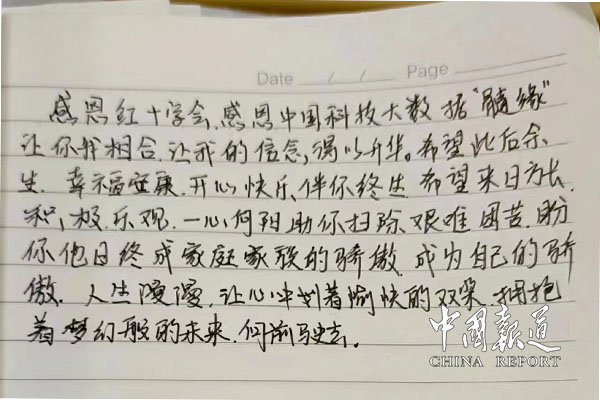 Date / / Page
感恩红十字会,感恩中国科技大数据"髓缘"
让你我相合,让我的信念,得以升华。希望此后余
生,幸福安康,开心快乐,伴你终生,希望来日方长,
积极乐观,一心向阳助你扫除艰难困苦,盼
你他日终成家庭家族的骄傲,成为自己的骄
傲。人生漫漫,让心中划着愉快的双桨,拥抱
着梦幻般的未来,向前驶去。
中国报道
CHINA REPORT